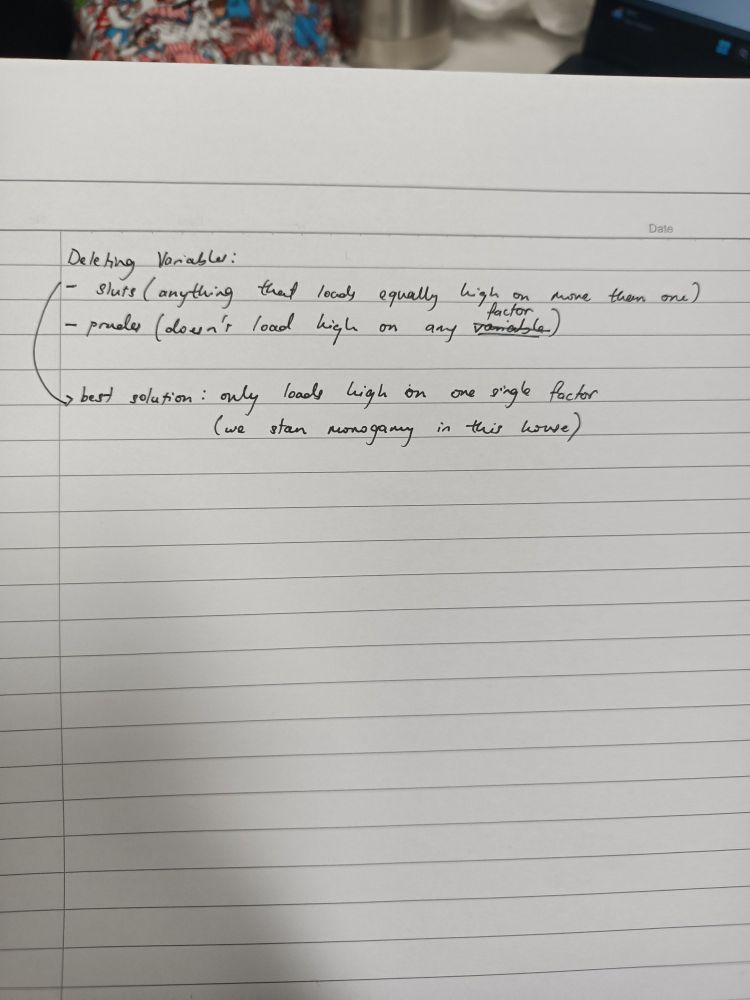 Date
Deleting Variables:
- sluts (anything that loads equally high on more them one)
- prudes (doesn't load high on any ~~variable~~ factor)
→ best solution: only loads high on one single factor
(we stan monogamy in this house)